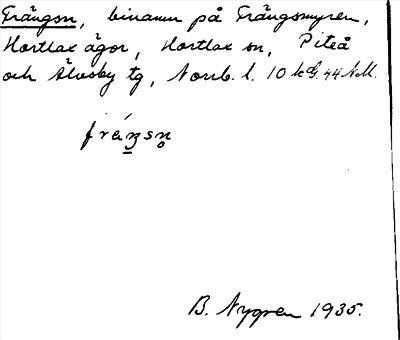 Trängsn, binamn på Trängsmyren,
Hortlax ägor, Hortlax sn, Piteå
och Älvsby tg, Norrb. l. 10 k G. 44 NM.
B. Nygren 1935.